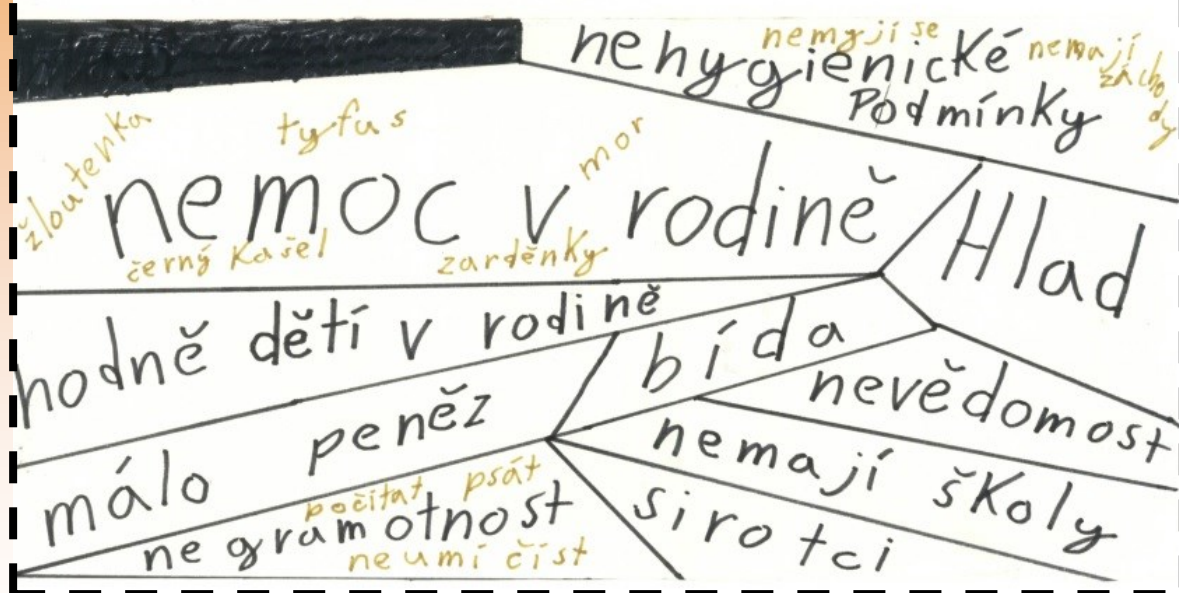 nemyjí se
nehygienické
nemají
záchody
Podmínky
žloutenka
tyfus
mor
nemoc v rodině
černý Kašel
zarděnky
Hlad
hodně dětí v rodině
bída
nevědomost
málo peněz
nemají šKoly
počítat psát
negramotnost
neumí číst
sirotci